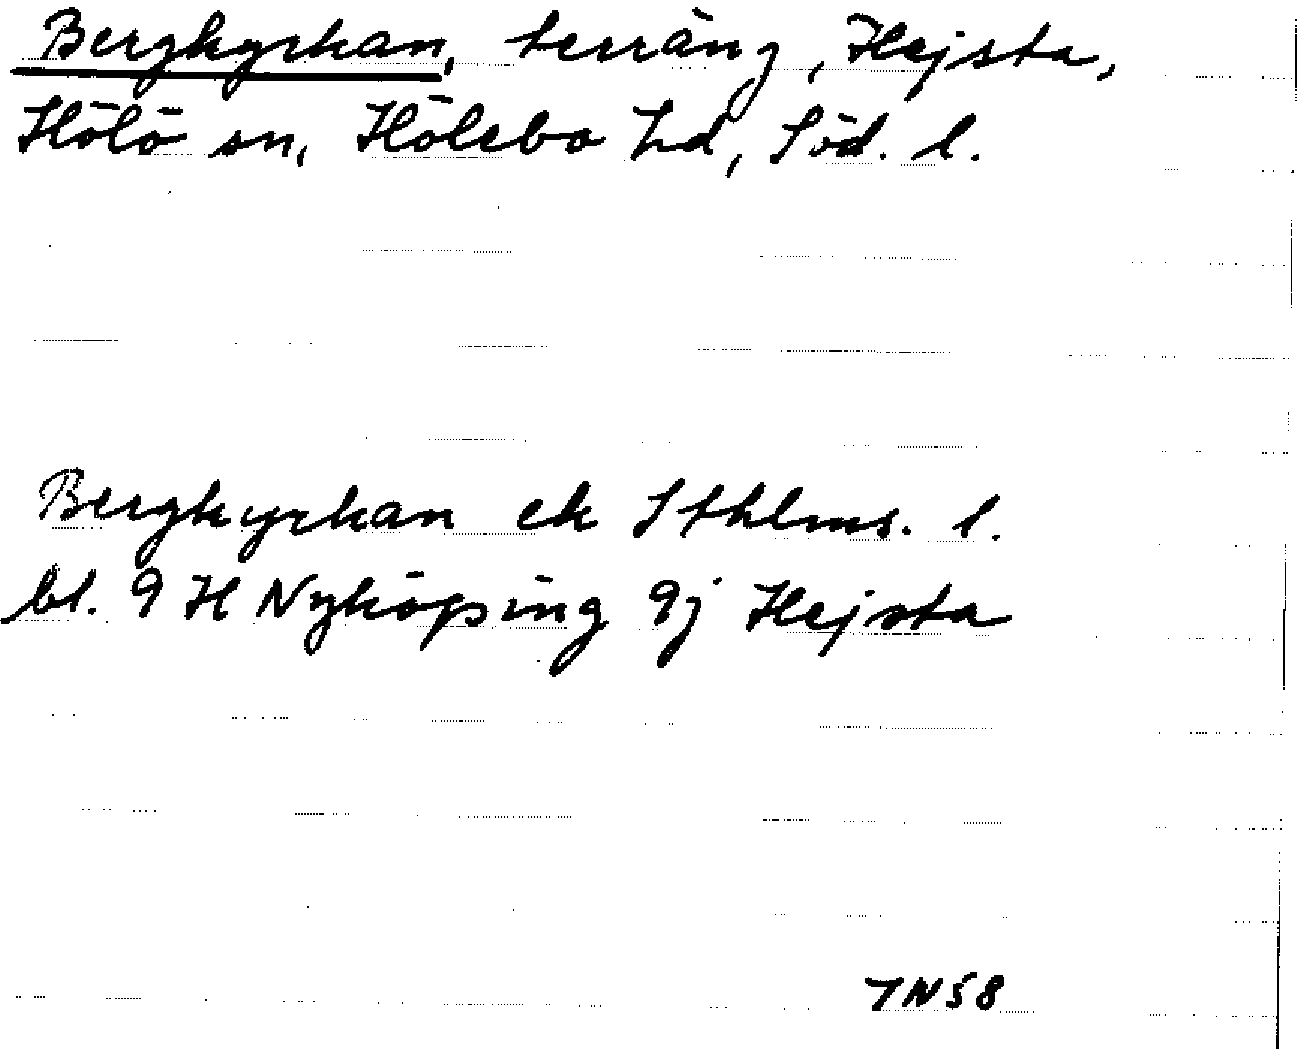 Bergkyrkan, terräng, Hejsta,
Hölö sn, Hölebo hd, Söd. l.
Bergkyrkan ek Sthlms. l.
bl. 9 H Nyköping 9j Hejsta
TN58